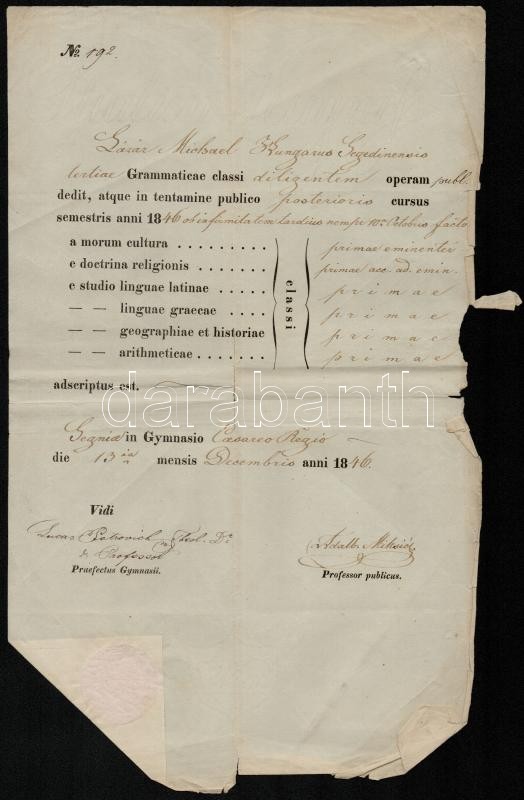 No. 192.
Lázár Michael Hungarus Szegedinensis
tertiae Grammaticae classi diligentem operam publ.
dedit, atque in tentamine publico posterioris cursus
semestris anni 1846 ob infirmitatem tardius nempe 10a Octobris facto
a morum cultura . . . . . . . . . primae eminenter
e doctrina religionis . . . . . . . primae acc. ad emin.
e studio linguae latinae . . . . . primae
— — linguae graecae . . . . primae
— — geographiae et historiae primae
— — arithmeticae . . . . . . . primae
classi
adscriptus est.
darabanth
Segniae in Gymnasio Caesareo Regio
die 13ia mensis Decembris anni 1846.
Vidi
Lucas Petrovich Theol. Dr.
& Professor
Praefectus Gymnasii.
Adalb. Miksić
Professor publicus.